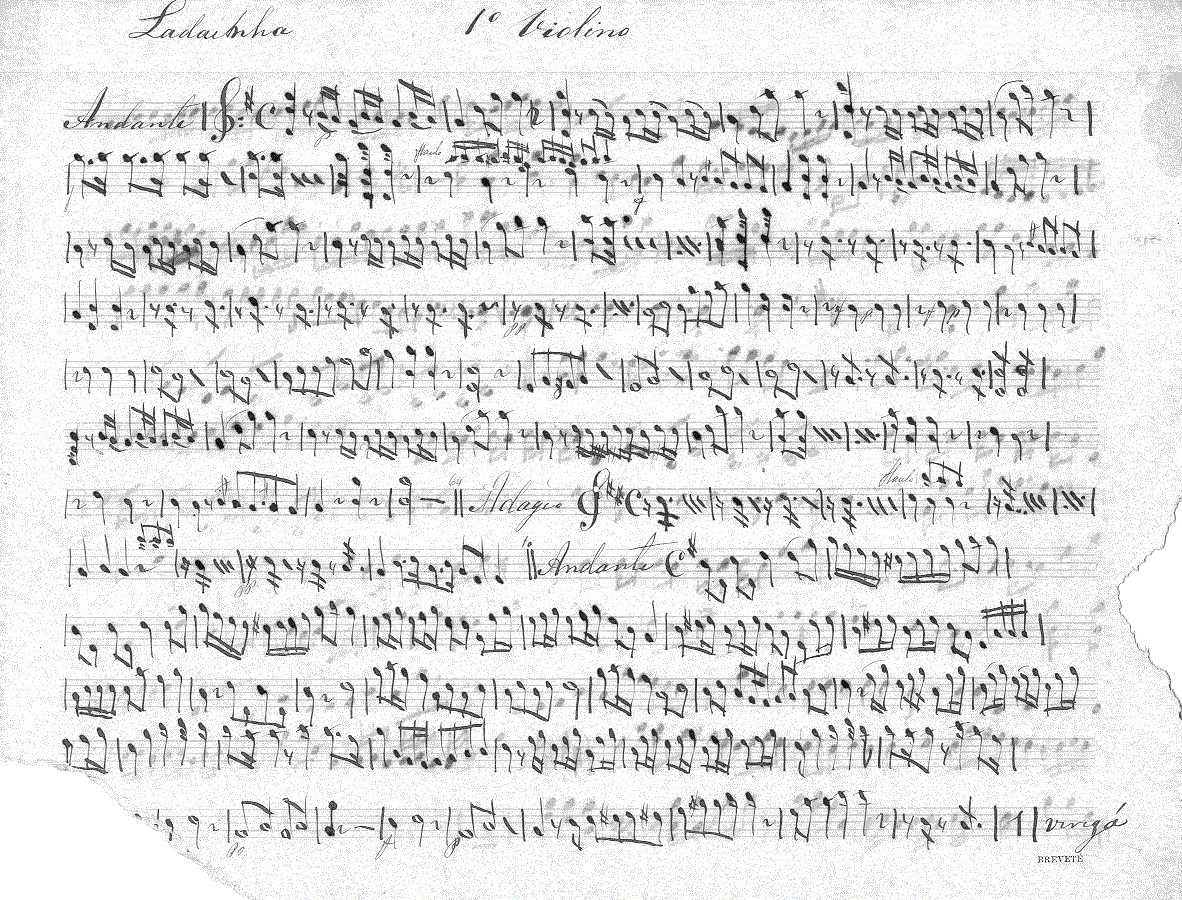 Ladainha 1º Violino
Andante
Flauto
Flauto
Adagio
Andante
virigá
BREVETÉ